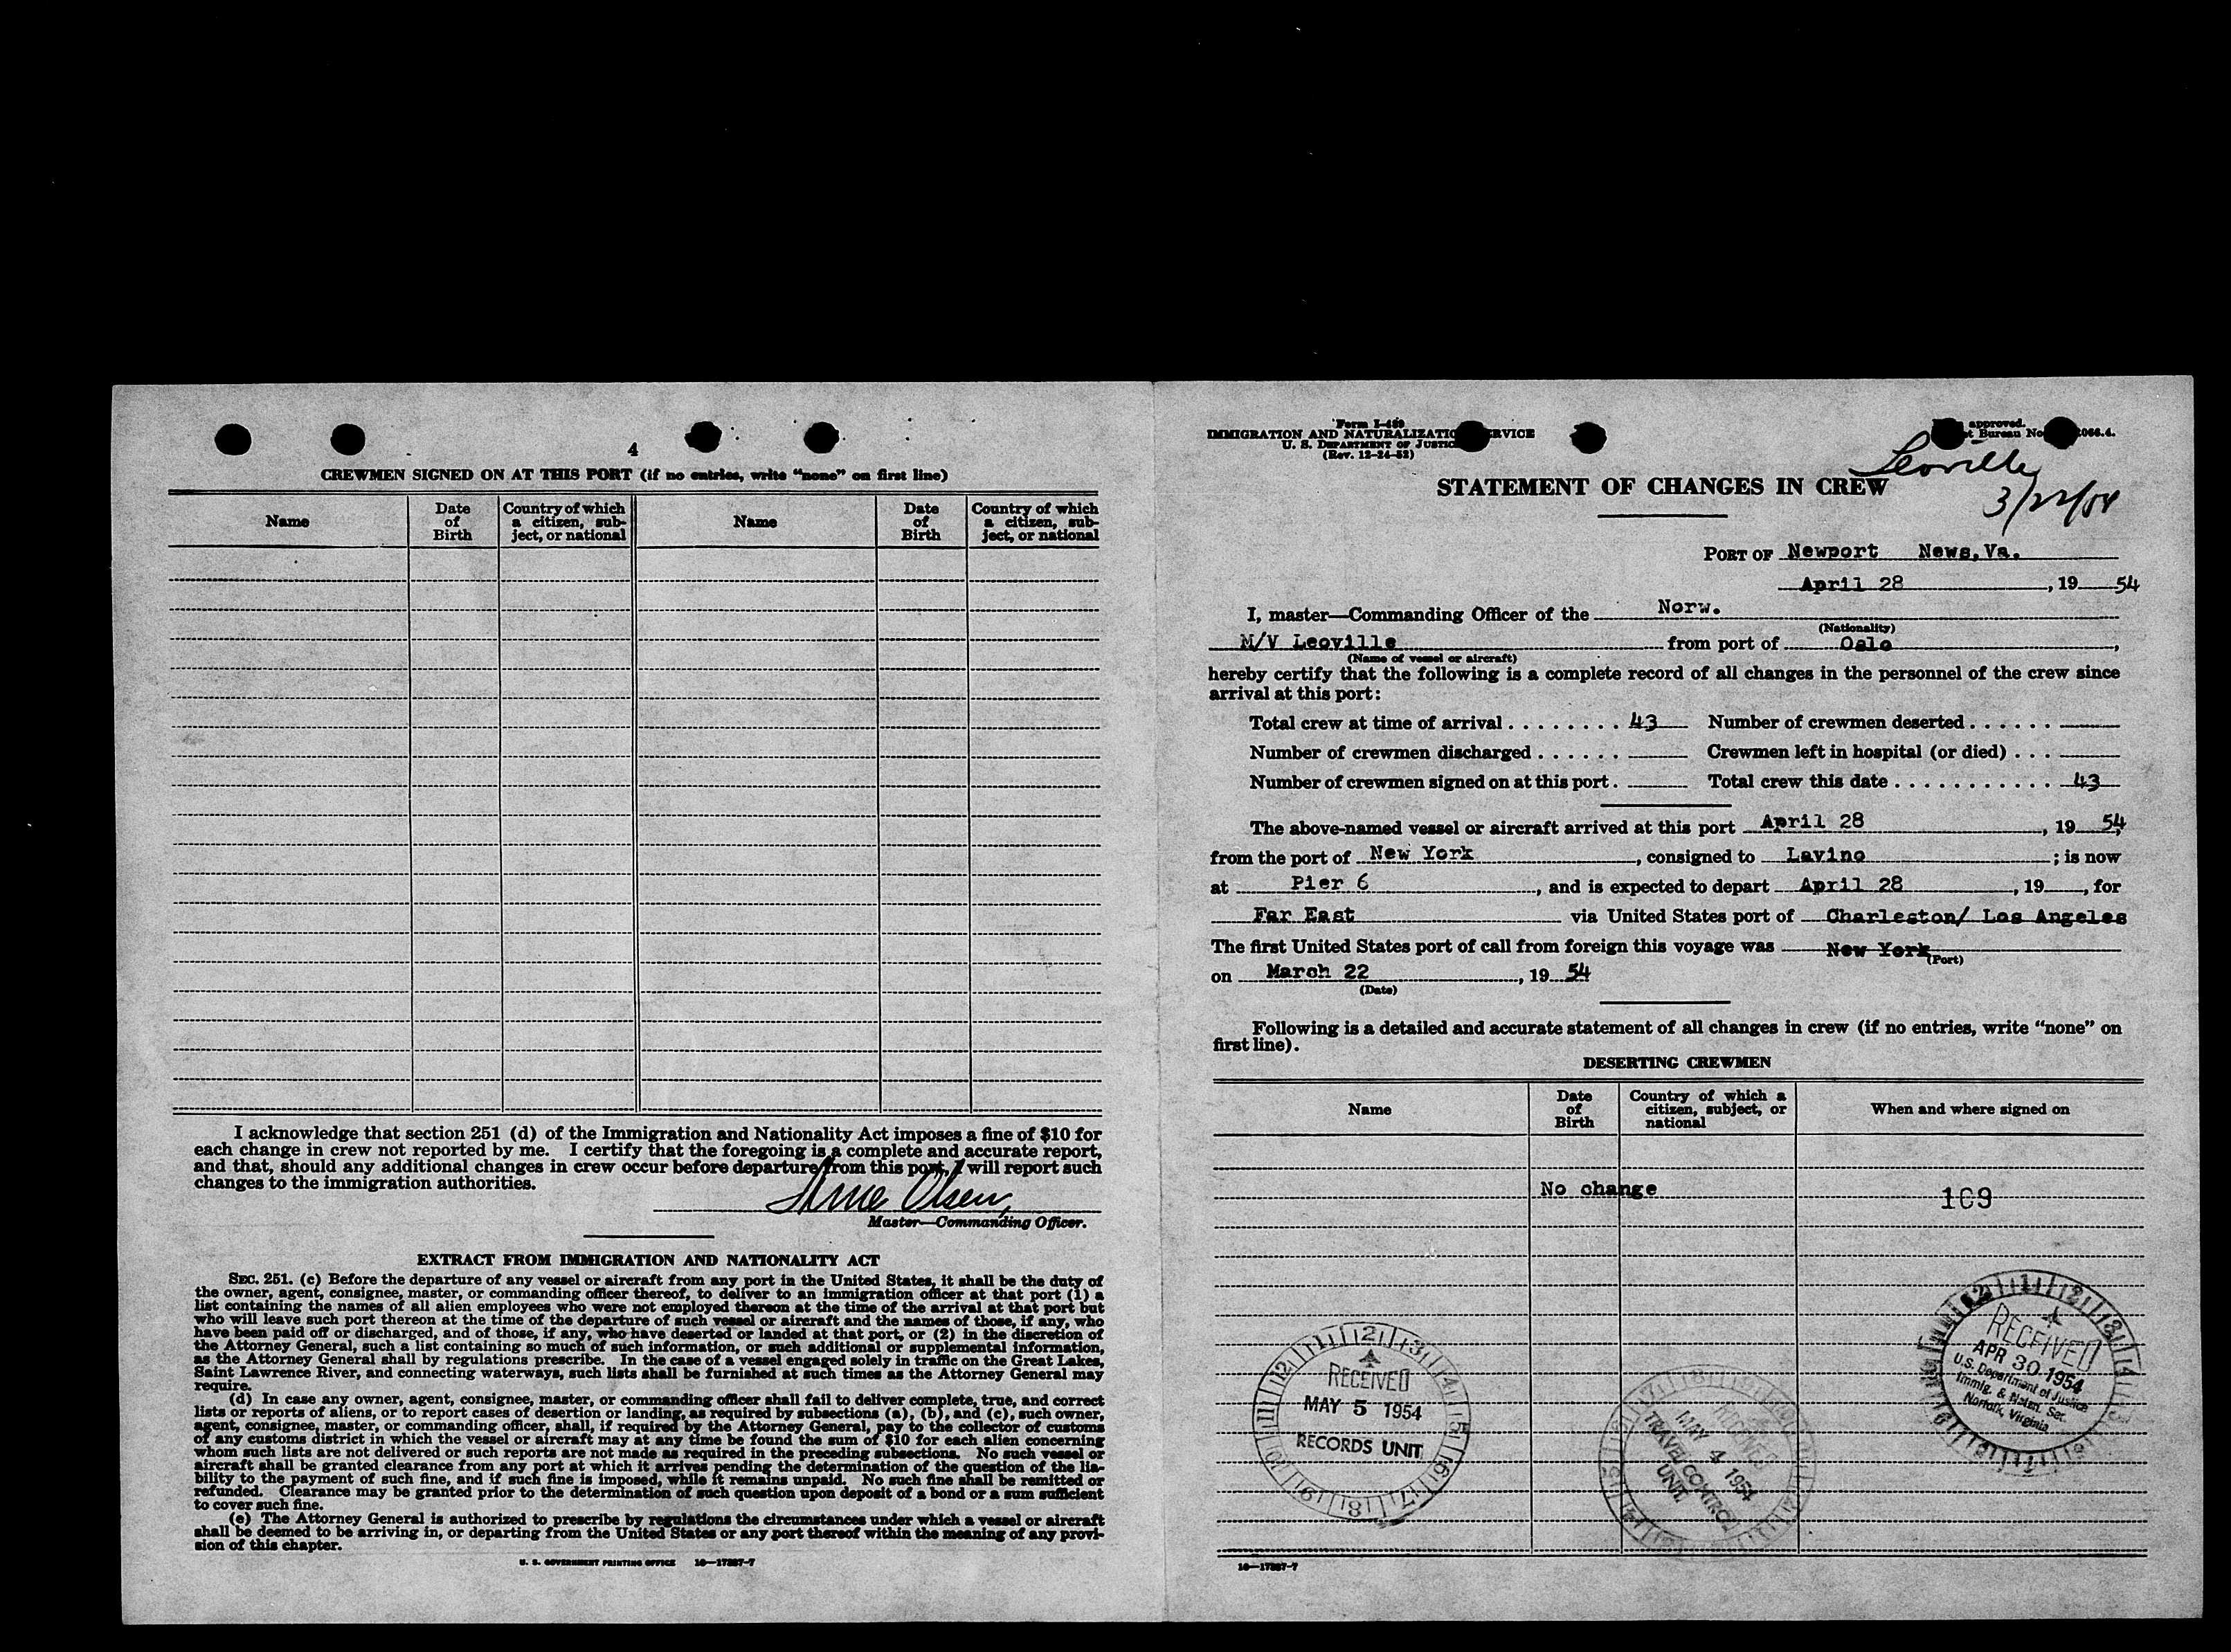 4
CREWMEN SIGNED ON AT THIS PORT (if no entries, write "none" on first line)
Name
Date of Birth
Country of which a citizen, sub-ject, or national
Name
Date of Birth
Country of which a citizen, sub-ject, or national
I acknowledge that section 251 (d) of the Immigration and Nationality Act imposes a fine of $10 for
each change in crew not reported by me. I certify that the foregoing is a complete and accurate report,
and that, should any additional changes in crew occur before departure from this port, I will report such
changes to the immigration authorities.
Arne Olsen
Master—Commanding Officer.
EXTRACT FROM IMMIGRATION AND NATIONALITY ACT
SEC. 251. (c) Before the departure of any vessel or aircraft from any port in the United States, it shall be the duty of
the owner, agent, consignee, master, or commanding officer thereof, to deliver to an immigration officer at that port (1) a
list containing the names of all alien employees who were not employed thereon at the time of the arrival at that port but
who will leave such port thereon at the time of the departure of such vessel or aircraft and the names of those, if any, who
have been paid off or discharged, and of those, if any, who have deserted or landed at that port, or (2) in the discretion of
the Attorney General, such a list containing so much of such information, or such additional or supplemental information,
as the Attorney General shall by regulations prescribe. In the case of a vessel engaged solely in traffic on the Great Lakes,
Saint Lawrence River, and connecting waterways, such lists shall be furnished at such times as the Attorney General may
require.
(d) In case any owner, agent, consignee, master, or commanding officer shall fail to deliver complete, true, and correct
lists or reports of aliens, or to report cases of desertion or landing, as required by subsections (a), (b), and (c), such owner,
agent, consignee, master, or commanding officer, shall, if required by the Attorney General, pay to the collector of customs
of any customs district in which the vessel or aircraft may at any time be found the sum of $10 for each alien concerning
whom such lists are not delivered or such reports are not made as required in the preceding subsections. No such vessel or
aircraft shall be granted clearance from any port at which it arrives pending the determination of the question of the lia-
bility to the payment of such fine, and if such fine is imposed, while it remains unpaid. No such fine shall be remitted or
refunded. Clearance may be granted prior to the determination of such question upon deposit of a bond or a sum sufficient
to cover such fine.
(e) The Attorney General is authorized to prescribe by regulations the circumstances under which a vessel or aircraft
shall be deemed to be arriving in, or departing from the United States or any port thereof within the meaning of any provi-
sion of this chapter.
U. S. GOVERNMENT PRINTING OFFICE 16—17887-7
Form I-489
IMMIGRATION AND NATURALIZATIO RVICE
U. S. DEPARTMENT OF JUSTIC
(Rev. 12-24-52)
approved.
t Bureau No. 066.4.
Leoville
3/22/54
STATEMENT OF CHANGES IN CREW
PORT OF Newport News, Va.
April 28, 19 54
I, master—Commanding Officer of the Norw.
(Nationality)
M/V Leoville from port of Oslo,
(Name of vessel or aircraft)
hereby certify that the following is a complete record of all changes in the personnel of the crew since
arrival at this port:
Total crew at time of arrival ........ 43 Number of crewmen deserted ......
Number of crewmen discharged ...... Crewmen left in hospital (or died) ...
Number of crewmen signed on at this port . Total crew this date ............ 43
The above-named vessel or aircraft arrived at this port April 28, 19 54,
from the port of New York, consigned to Lavino; is now
at Pier 6, and is expected to depart April 28, 19 , for
Far East via United States port of Charleston/ Los Angeles
The first United States port of call from foreign this voyage was New York
(Port)
on March 22, 19 54
(Date)
Following is a detailed and accurate statement of all changes in crew (if no entries, write "none" on
first line).
DESERTING CREWMEN
Name
Date of Birth
Country of which a citizen, subject, or national
When and where signed on
No change
109
RECEIVED
APR 30 1954
U.S. Department of Justice
Immig. & Natzn. Ser.
Norfolk, Virginia
RECEIVED
MAY 5 1954
RECORDS UNIT
RECEIVED
MAY 4 1954
TRAVEL CONTROL
UNIT
16—17887-7